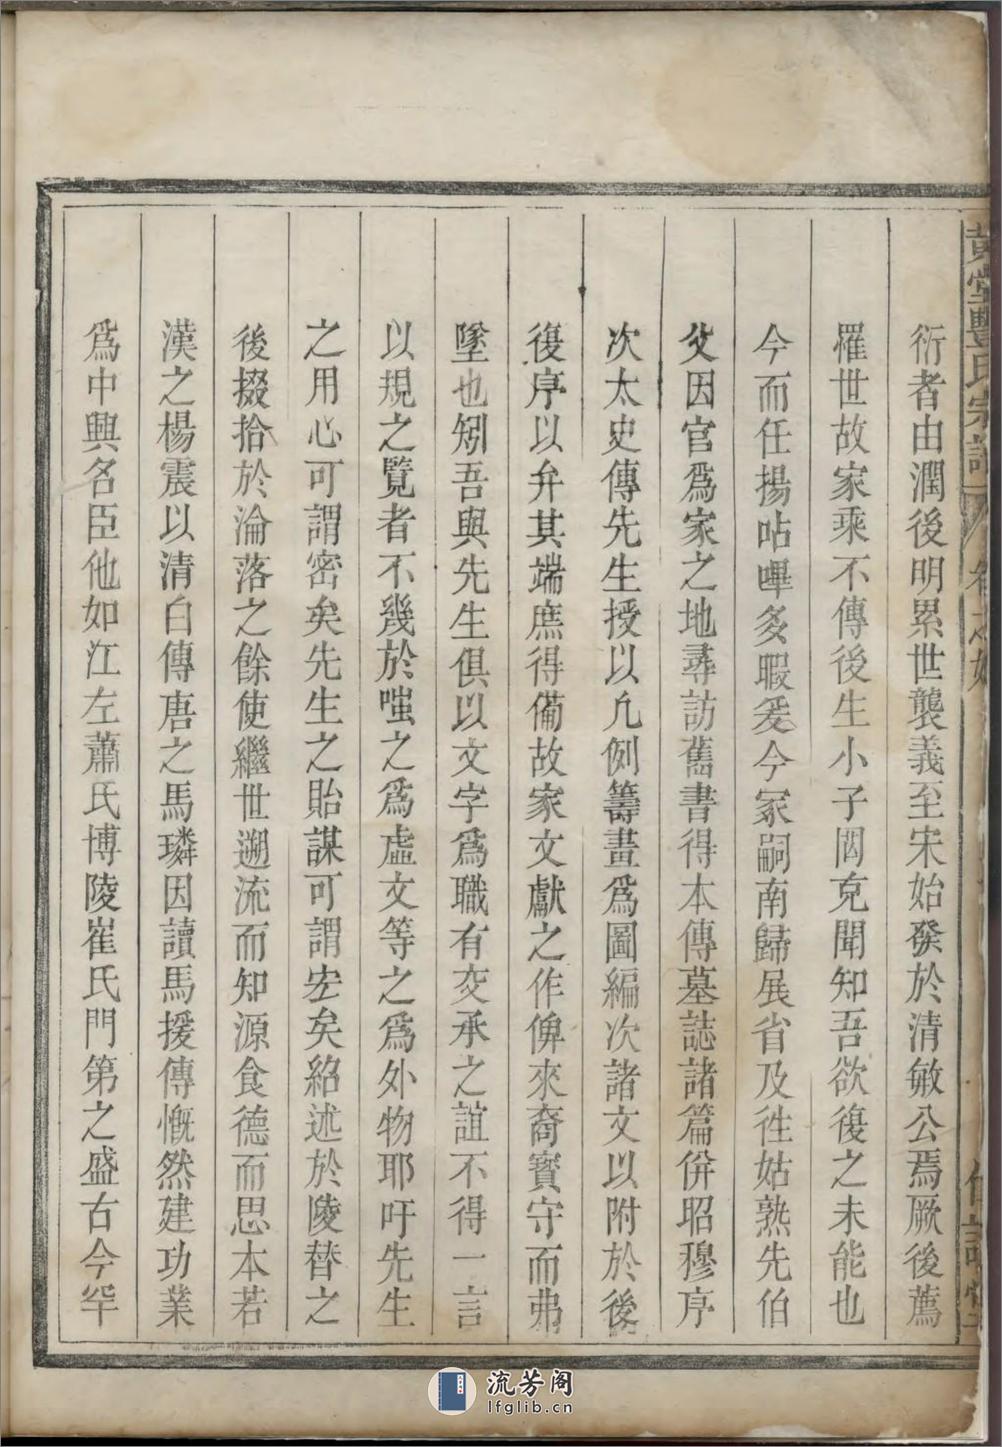 黃堂豐氏宗譜
衍者由潤後明累世襲義至宋始發於清敏公焉厥後薦
罹世故家乘不傳後生小子罔克聞知吾欲復之未能也
今而任揚呫嗶多暇爰今冢嗣南歸展省及徃姑熟先伯
父因官爲家之地尋訪舊書得本傳墓誌諸篇併昭穆序
次太史傳先生授以凡例籌畫爲圖編次諸文以附於後
復序以弁其端庶得備故家文獻之作俾來裔寳守而弗
墜也矧吾與先生俱以文字爲職有交承之誼不得一言
以規之覽者不幾於嗤之爲虛文等之爲外物耶吁先生
之用心可謂密矣先生之貽謀可謂宏矣紹述於陵替之
後掇拾於淪落之餘使繼世遡流而知源食德而思本若
漢之楊震以清白傳唐之馬璘因讀馬援傳慨然建功業
爲中興名臣他如江左蕭氏博陵崔氏門第之盛古今罕
流芳阁
lfglib.cn